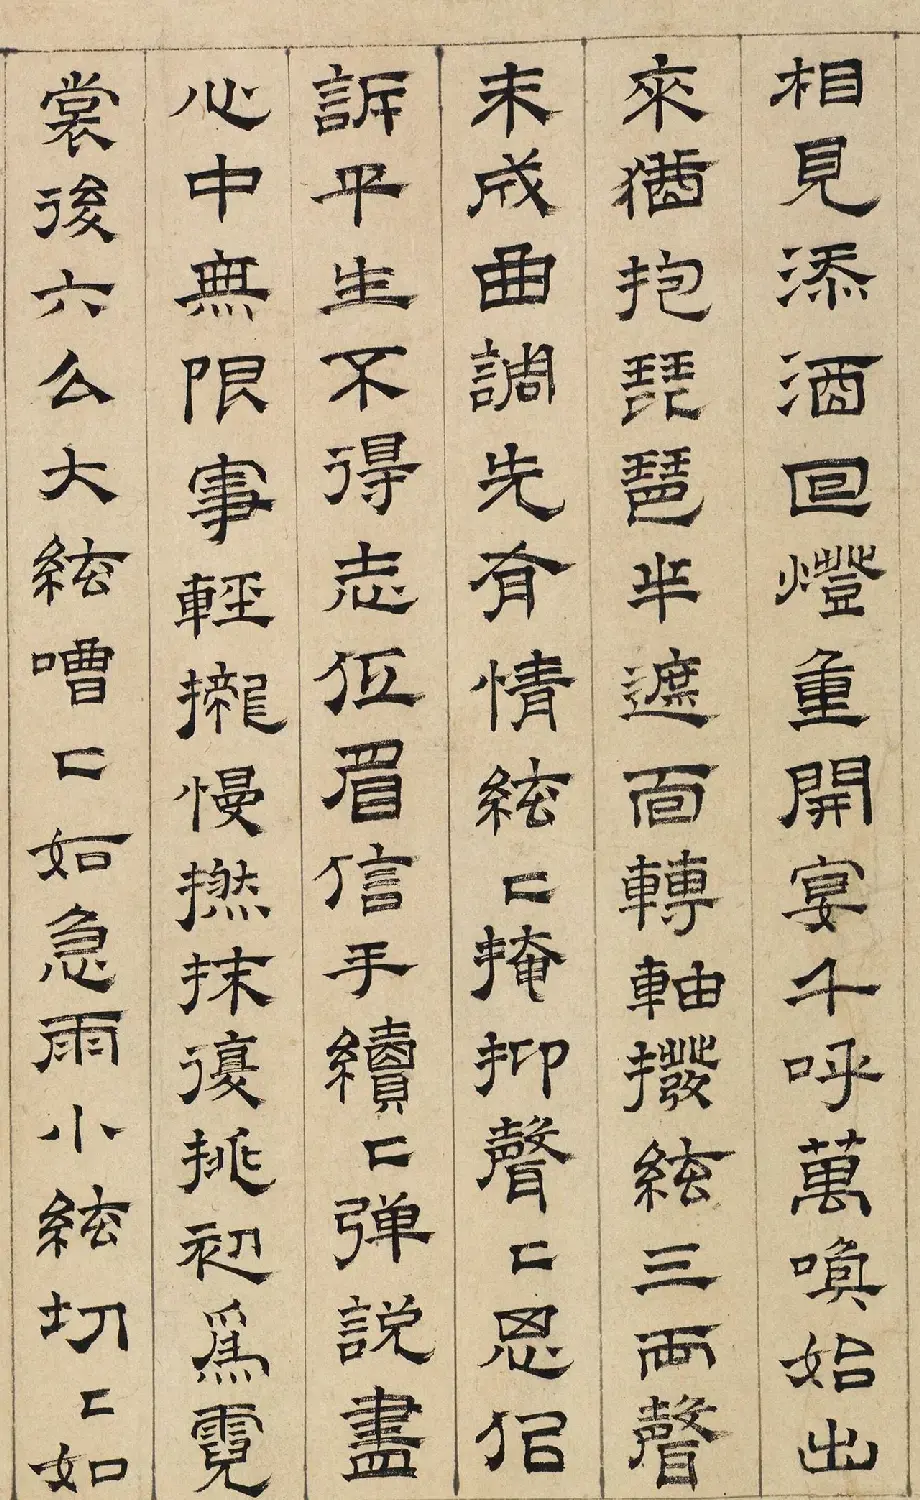 相見添酒回燈重開宴千呼萬喚始出
來猶抱琵琶半遮面轉軸撥絃三兩聲
未成曲調先有情絃〻掩抑聲〻思似
訴平生不得志低眉信手續〻弹說盡
心中無限事輕攏慢撚抹復挑初爲霓
裳後六么大絃嘈〻如急雨小絃切〻如